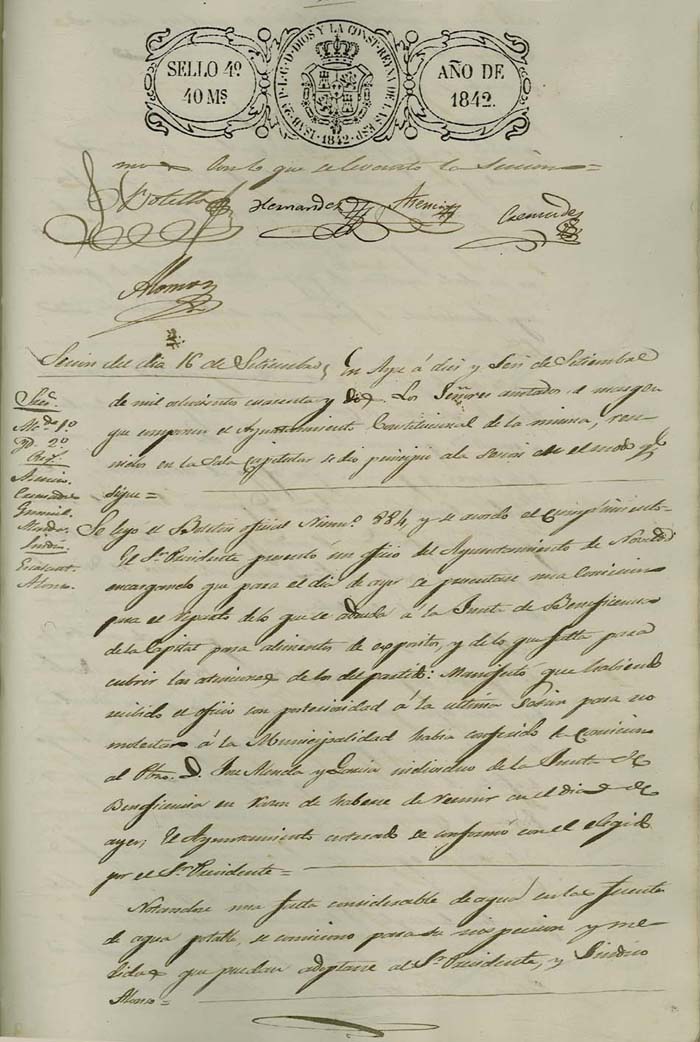 SELLO 4º
40 Ms
ISAB. 2ª P. L. G. D. DIOS Y LA CONST. REYNA DE LAS ESP. 1842.
AÑO DE
1842.
Con lo que se levanto la Sesion=
Botella Hernandez Asencio Cremades
Alonso
Sesion del dia 16 de Setiembre, En Aspe á dies y Seis de Setiembre
de mil ochocientos cuarenta y dos Los Señores anotados al margen
que componen el Ayuntamiento Constitucional de la misma, reu-
nidos en la Sala Capitular se dio principio ala Sesion en el modo qe
sigue=
Sres.
Alde 1º.
Yd. 2º.
Reg.
Asencio.
Cremades
Sindic.
Alonso.
Se leyo el Boletin oficial Numº. 884 y se acordo el cumplimiento.
El Sr. Presidente presentó un oficio del Ayuntamiento de Novelda
encargando que para el dia de ayer se presentase una Comision
para el reparto de lo que se adeuda á la Junta de Beneficencia
de la Capital para alimentos de expositos, y de lo que falta para
cubrir las atenciones de los del partido: Manifestó que habiendo
recibido el oficio con posterioridad á la ultima Sesion para no
molestar á la Municipalidad habia conferido la Comision
al Pbro. D. Jose y Garcia individuo de la Junta de
Beneficencia en razon de haberse de reunir en el dia de
ayer; El Ayuntamiento enterado se conformó con el elegido
por el Sr. Presidente=
Notandose una falta considerable de agua en la fuente
de agua potable, se comiciono para su inspeccion y me-
didas que puedan adoptarse al Sr. Presidente, y Sindico
Alonso=